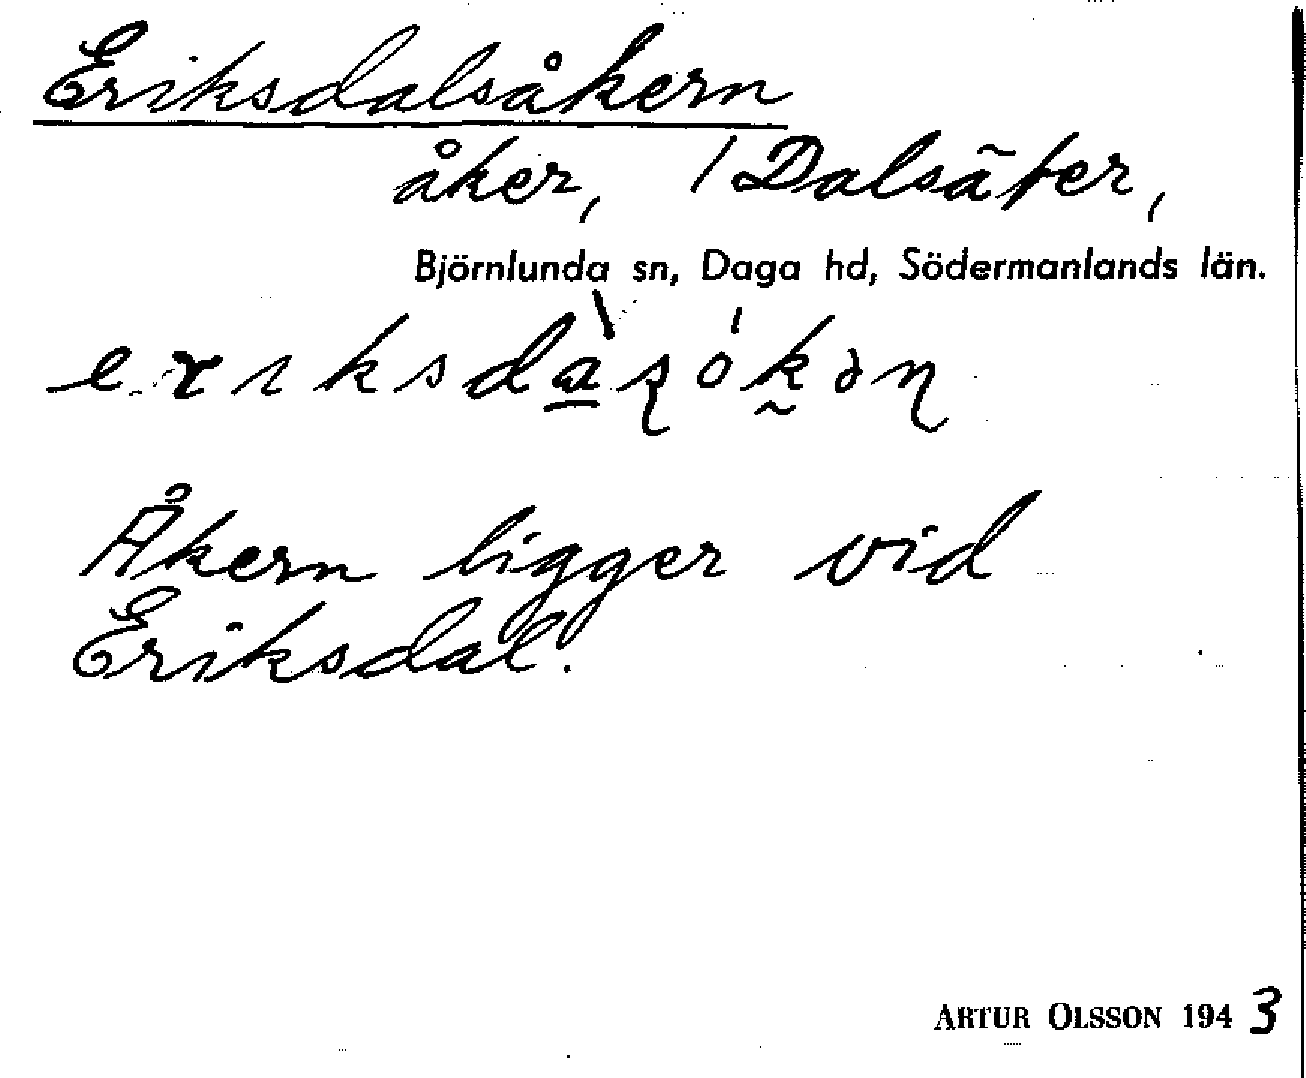 Eriksdalsåkern
åker, / Dalsäter,
Björnlunda sn, Daga hd, Södermanlands län.
Åkern ligger vid
Eriksdal.
ARTUR OLSSON 1943